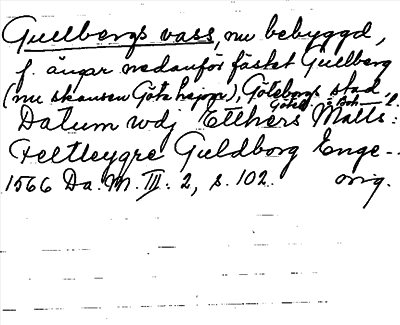 Gullbergs vass, nu bebyggd,
f. ängar nedanför fästet Gullberg
(nu skansen Göta Lejon), Göteborgs stad,
Göteb. o. Boh. l.
Datum wdj Etthers Matts:
Feltleygre Guldborg Enge-
1566 Da. M. III. 2, s. 102. orig.